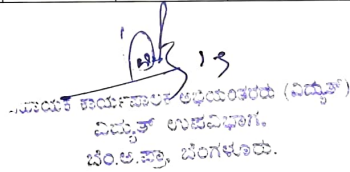 ಸಹಾಯಕ ಕಾರ್ಯಪಾಲಕ ಅಭಿಯಂತರರು (ವಿದ್ಯುತ್)
ವಿದ್ಯುತ್ ಉಪವಿಭಾಗ,
ಬೆಂ.ಅ.ಪ್ರಾ, ಬೆಂಗಳೂರು.